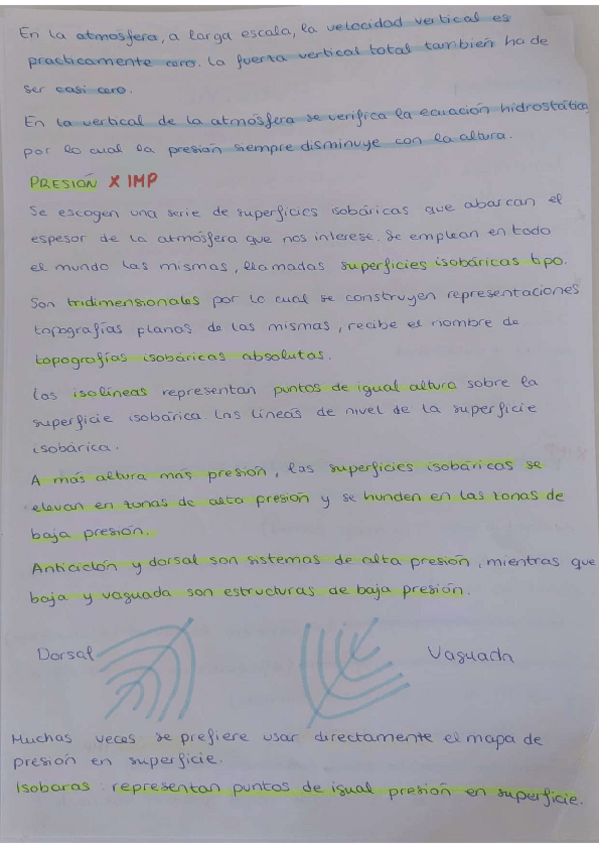 En la atmósfera, a larga escala, la velocidad vertical es
practicamente cero. La fuerza vertical total también ha de
ser casi cero.
En la vertical de la atmósfera se verifica la ecuación hidrostática,
por lo cual la presión siempre disminuye con la altura.
PRESIÓN X IMP
Se escogen una serie de superficies isobáricas que abarcan el
espesor de la atmósfera que nos interese. Se emplean en todo
el mundo las mismas, llamadas superficies isobáricas tipo.
Son tridimensionales por lo cual se construyen representaciones
topografías planas de las mismas, recibe el nombre de
topografías isobáricas absolutas.
Las isolíneas representan puntos de igual altura sobre la
superficie isobárica. Las líneas de nivel de la superficie
isobárica.
A más altura más presión, las superficies isobáricas se
elevan en zonas de alta presión y se hunden en las zonas de
baja presión.
Anticiclón y dorsal son sistemas de alta presión, mientras que
baja y vaguada son estructuras de baja presión.
Dorsal Vaguada
Muchas veces se prefiere usar directamente el mapa de
presión en superficie.
Isobaras: representan puntos de igual presión en superficie.